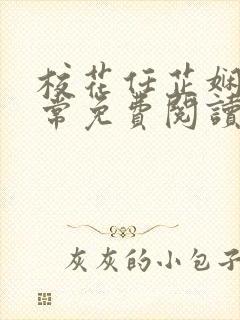 校花任芷娴
常免费閱讀
灰灰的小包子